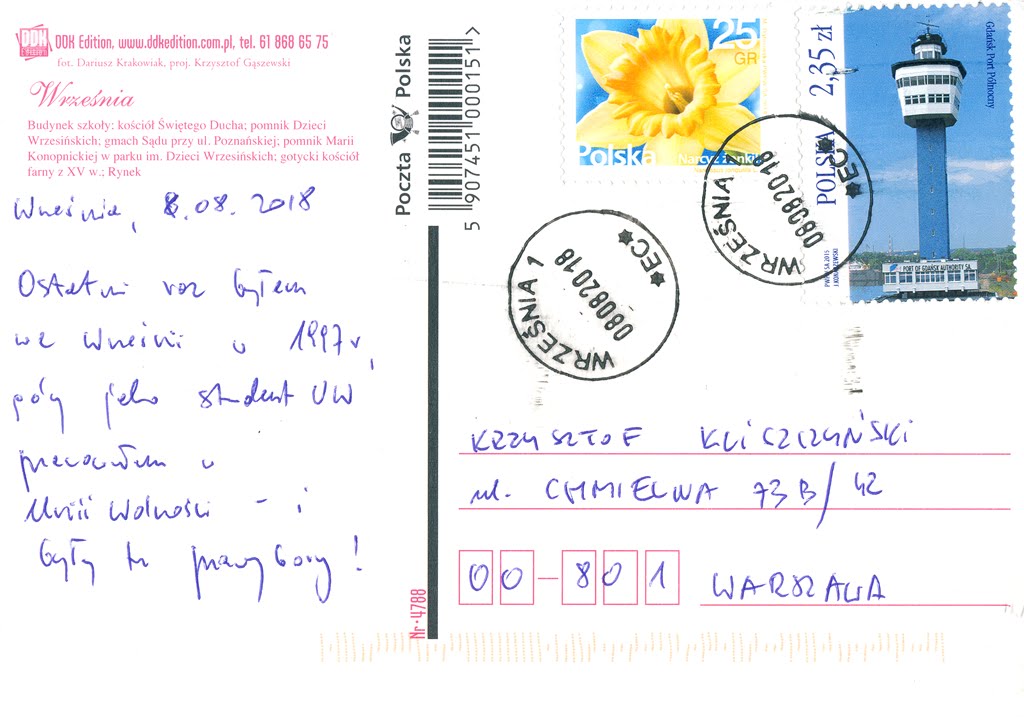 DDK Edition, www.ddkedition.com.pl, tel. 61 868 65 75
fot. Dariusz Krakowiak, proj. Krzysztof Gąszewski
Września
Budynek szkoły: kościół Świętego Ducha; pomnik Dzieci
Wrzesińskich; gmach Sądu przy ul. Poznańskiej; pomnik Marii
Konopnickiej w parku im. Dzieci Wrzesińskich; gotycki kościół
farny z XV w.; Rynek
Września, 8.08.2018
Ostatni raz byłem
we Wrześni w 1997 r,
gdy jako student UW
pracowałem w
Unii Wolności - i
były tu prawybory!
Nr - 4788
Poczta Polska
5 907451 000151 >
25
GR
Polska
Narcyz żonkil
POLSKA 2,35 zł
Gdańsk Port Północny
PORT OF GDAŃSK AUTHORITY SA.
WRZEŚNIA 1
08082018
*EC*
WRZEŚNIA 1
08082018
*EC*
KRZYSZTOF KLICZCZYŃSKI
ul. CHMIELNA 73B/42
00-801 WARSZAWA